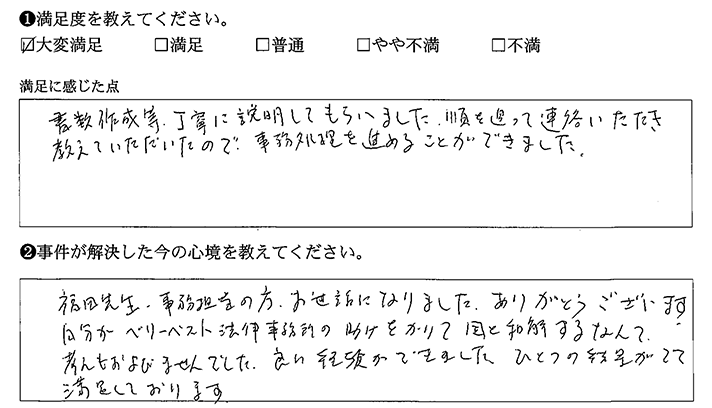 ❶満足度を教えてください。
☑大変満足 □満足 □普通 □やや不満 □不満
満足に感じた点
書類作成等、丁寧に説明してもらいました。順を追って連絡いただき
教えていただいたので、事務処理を進めることができました。
❷事件が解決した今の心境を教えてください。
福田先生、事務担当の方、お世話になりました。ありがとうございます。
自分がベリーベスト法律事務所の助けをかりて国と和解するなんて、
考えもおよびませんでした。良い経験ができました。ひとつの結果がでて
満足しております